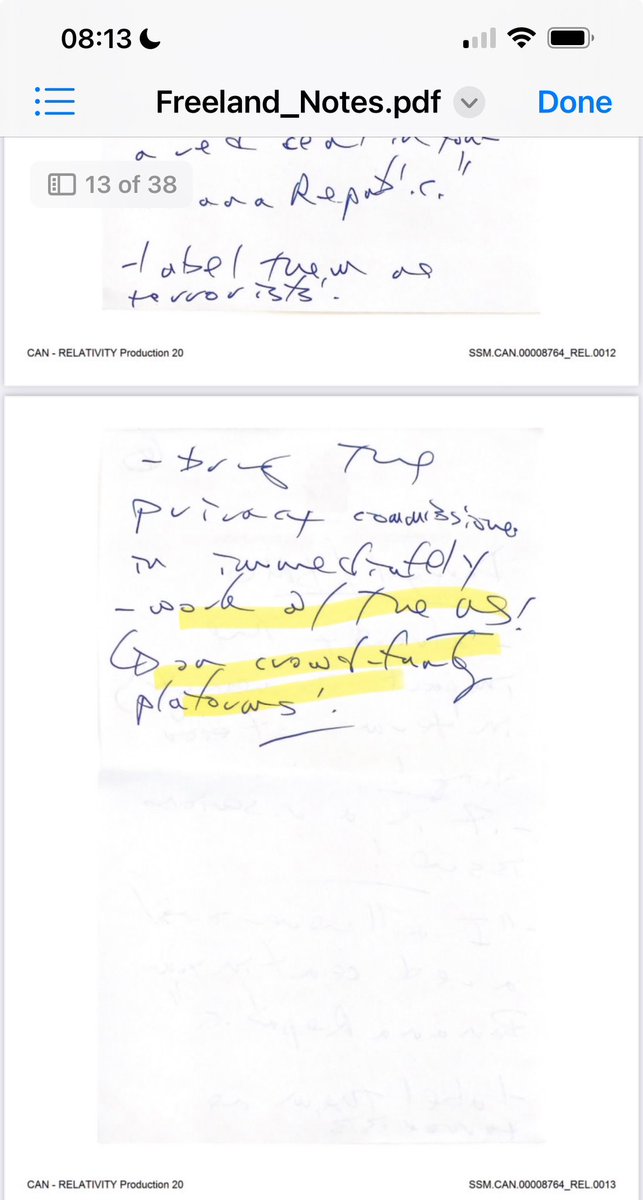 08:13
Freeland_Notes.pdf
Done
13 of 38
a red
ana Repub'.c."
- label them as
terrorists'.
CAN - RELATIVITY Production 20
SSM.CAN.00008764_REL.0012
- bring the
privacy commissioner
in immediately
- work w/ the US!
on crowd-funding
platforms'.
CAN - RELATIVITY Production 20
SSM.CAN.00008764_REL.0013